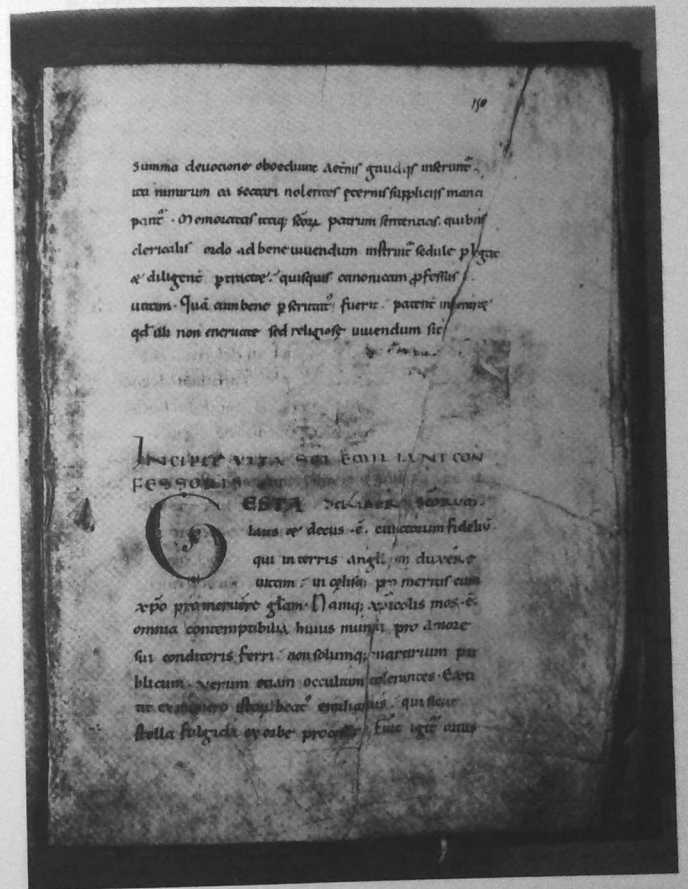 150
summa deuocione oboediunt aetnis gaudiis inserunt᷑
ita nimirum ea sectari nolentes ęternis suppliciis manci
pant᷑ · Memoratas itaq; scōꝝ patrum sententias quibus
clericalis ordo ad bene uiuendum instruit᷑ sedule plegat
& diligent᷑ ptractet quisquis canonicam ꝓfessus
uitam · Quā cum bene pscrutat᷑ fuerit patent᷑ inueniet
qđ illi non eneruate sed religiose uiuendum sit
INCIPIT VITA SCI EMILIANI CON
FESSORIS
GESTA SCŌRUM
laus & decus · ē · cunctorum fideliū
qui in terris anglicam duxere
uitam in cęlis pro meritis cum
xp̄o promeruere głam · Namq; xp̄icolis mos · ē ·
omnia contemptibilia huius mundi pro amore
sui conditoris ferri non solumq; narrarium pu
blicum · verum etiam occultum tolerantes · Exti
tit ex numero istoꝝ beat᷒ emilianus qui sicut
stella fulgida ex orbe processit Fuit igit᷑ ortus